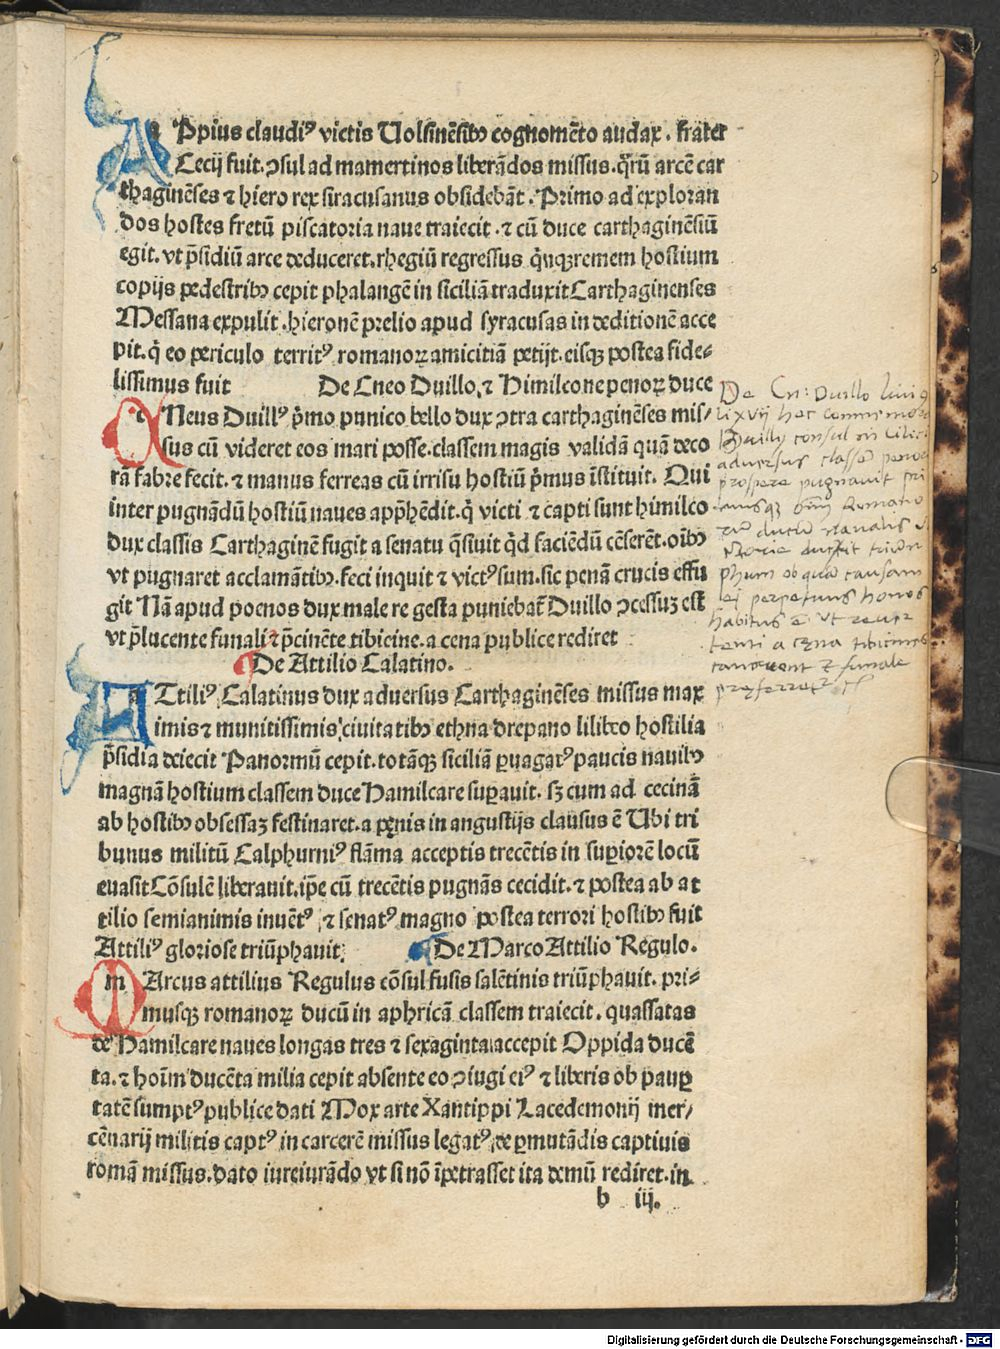 APpius claudiꝰ victis Uolsinēsibꝫ cognomēto audax. frater
Lecij fuit. ꝯsul ad mamertinos liberādos missus. qͥrū arcē car
thaginēses ⁊ hiero rex siracusanus obsidebāt. Primo ad exploran
dos hostes fretū piscatoria naue traiecit. ⁊ cū duce carthaginēsiū
egit. vt p̄sidiū arce deduceret. rhegiū regressus qͥnqꝫremem hostium
copijs pedestribꝫ cepit phalangē in siciliā traduxit Carthaginenses
Messana expulit. hieronē prelio apud syracusas in deditionē acce
pit. qͥ eo periculo territꝰ romanoꝝ amicitiā petijt. eisqꝫ postea fide⸗
lissimus fuit De Cneo Duillo, ⁊ Himilcone penoꝝ duce
CNeus Duillꝰ p̄mo punico bello dux ꝯtra carthaginēses mis⸗
sus cū videret eos mari posse. classem magis validā quā deco
rā fabre fecit. ⁊ manus ferreas cū irrisu hostiū p̄mus īstituit. Qui
inter pugnādū hostiū naues app̄hēdit. qͥ victi ⁊ capti sunt himilco
dux classis Carthaginē fugit a senatu q̄siuit qͥd faciēdū cēserēt. oībꝫ
vt pugnaret acclamātibꝫ. feci inquit ⁊ victꝰ sum. sic penā crucis effu
git Nā apud poenos dux male re gesta puniebat̄ Duillo ꝯcessuꝫ est
vt p̄lucente funali ⁊ p̄cinēte tibicine. a cena publice rediret
De Attilio Calatino.
ATtiliꝰ Calatinus dux aduersus Carthaginēses missus max
imis ⁊ munitissimis ciuitatibꝫ ethna drepano lilibeo hostilia
p̄sidia deiecit Panormū cepit. totāqꝫ siciliā ꝑuagatꝰ paucis nauibꝫ
magnā hostium classem duce Hamilcare suꝑauit. sꝫ cum ad cecinā
ab hostibꝫ obsessaꝫ festinaret. a pęnis in angustijs clausus ē Ubi tri
bunus militū Calphurniꝰ flāma acceptis trecētis in suꝑiorē locū
euasit Cōsulē liberauit. ip̄e cū trecētis pugnās cecidit. ⁊ postea ab at
tilio semianimis inuētꝰ, ⁊ senatꝰ magno postea terrori hostibꝫ fuit
Attiliꝰ gloriose triūphauit. De Marco Attilio Regulo.
mArcus attilius Regulus cōsul fusis salētinis triūphauit. pri⸗
musqꝫ romanoꝝ ducū in aphricā classem traiecit. quassatas
de Hamilcare naues longas tres ⁊ sexaginta accepit Oppida ducē
ta. ⁊ hoīm ducēta milia cepit absente eo ꝯiugi eiꝰ ⁊ liberis ob pauꝑ
tatē sumptꝰ publice dati Mox arte Xantippi Lacedemonij mer⸗
cēnarij militis captꝰ in carcerē missus legatꝰ, de ꝑmutādis captiuis
romā missus. dato iureiurādo vt si nō īpetrasset ita demū rediret. in
b iij.
De Cn: Duillo
li xvij hec commemorat
Duilly consul in
aduersus classem
prospere pugnauit pri
musqꝫ oīm Romano
rū ducū naualis
victorie duxit trium
phum ob quam causam
ei perpetuus honos
habitus ē ut reuer
tenti a cęna tibicines
canerent ⁊ funale
pręferretur
Digitalisierung gefördert durch die Deutsche Forschungsgemeinschaft - DFG